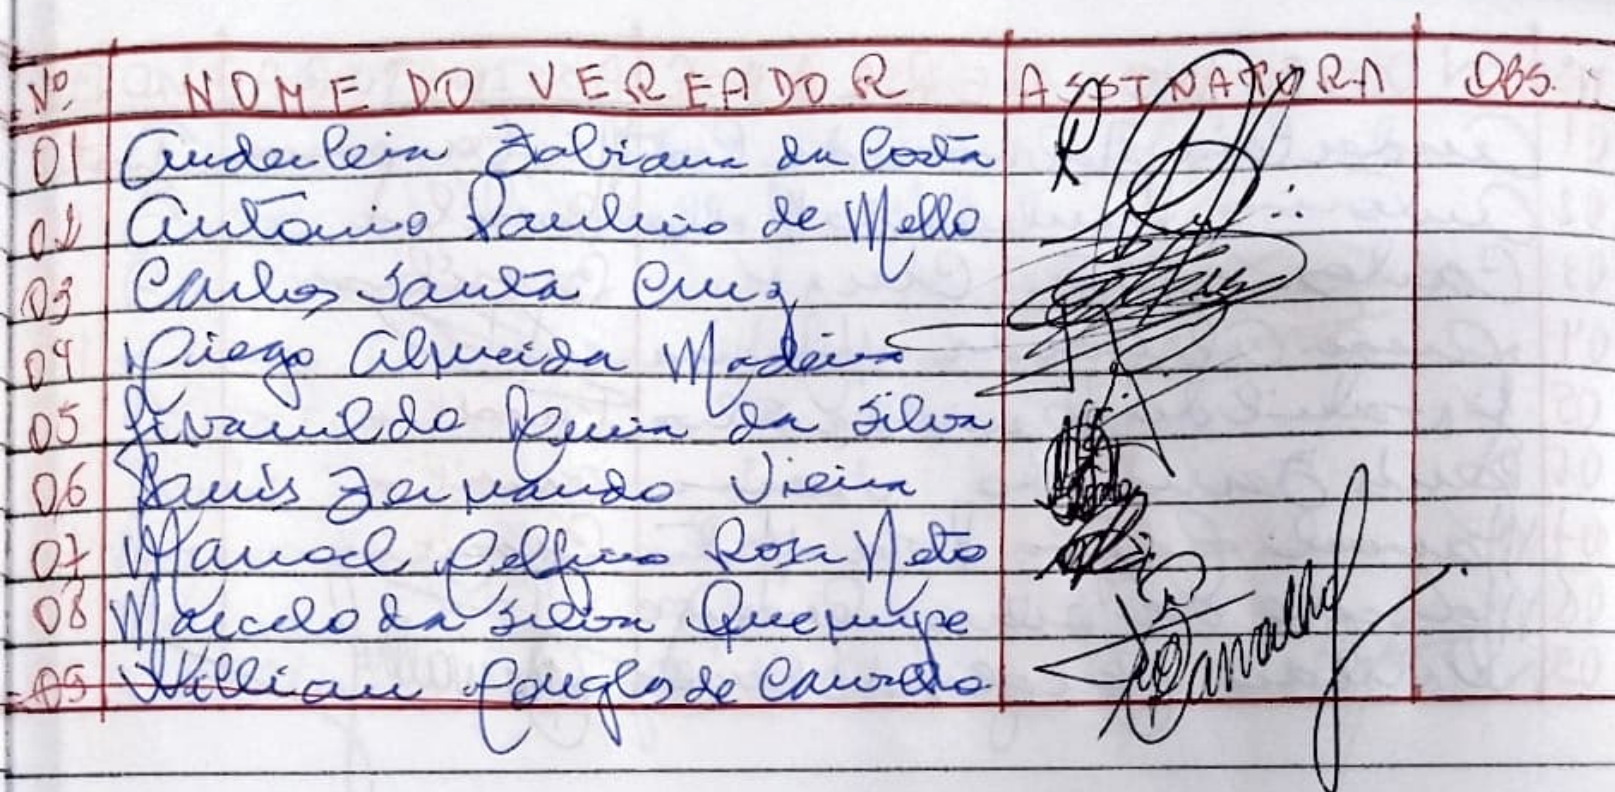 Nº NOME DO VEREADOR ASSINATURA OBS.
01 Anderleia Fabiana da Costa
02 Antônio Paulino de Mello
03 Carlos Santa Cruz
04 Diego Almeida Madeira
05 Givanildo da Silva
06 Fernando Vieira
07 Manoel Delfino Rosa Neto
08 Marcelo da Silva
09 Willian Douglas de Carvalho Carvalho